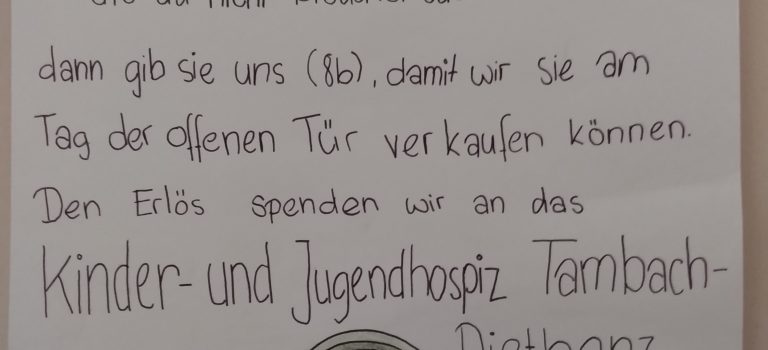 die du nicht
dann gib sie uns (8b), damit wir sie am
Tag der offenen Tür verkaufen können.
Den Erlös spenden wir an das
Kinder- und Jugendhospiz Tambach-
Dietharz